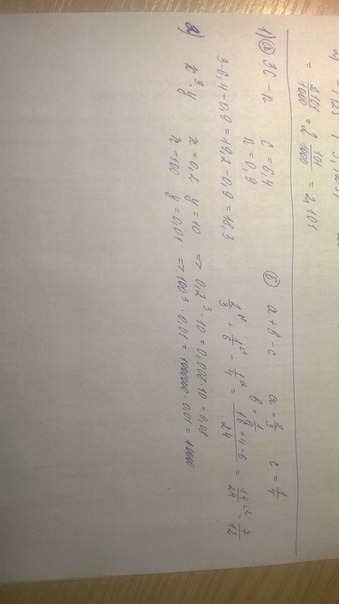 = 2101/1000 = 2 101/1000 = 2,101
1) а) 3c - n   c = 6,4
n = 0,9
3·6,4-0,9=19,2-0,9=18,3
б) a+b-c   a = 2/3   b = 1/6   c = 1/4
2/3 + 1/6 - 1/4 = (16+4-6)/24 = 14/24 = 7/12
2) x³·y   x=0,2   y=10 => 0,2³·10=0,008·10=0,08
x=100   y=0,01 => 100³·0,01=1000000·0,01=10000